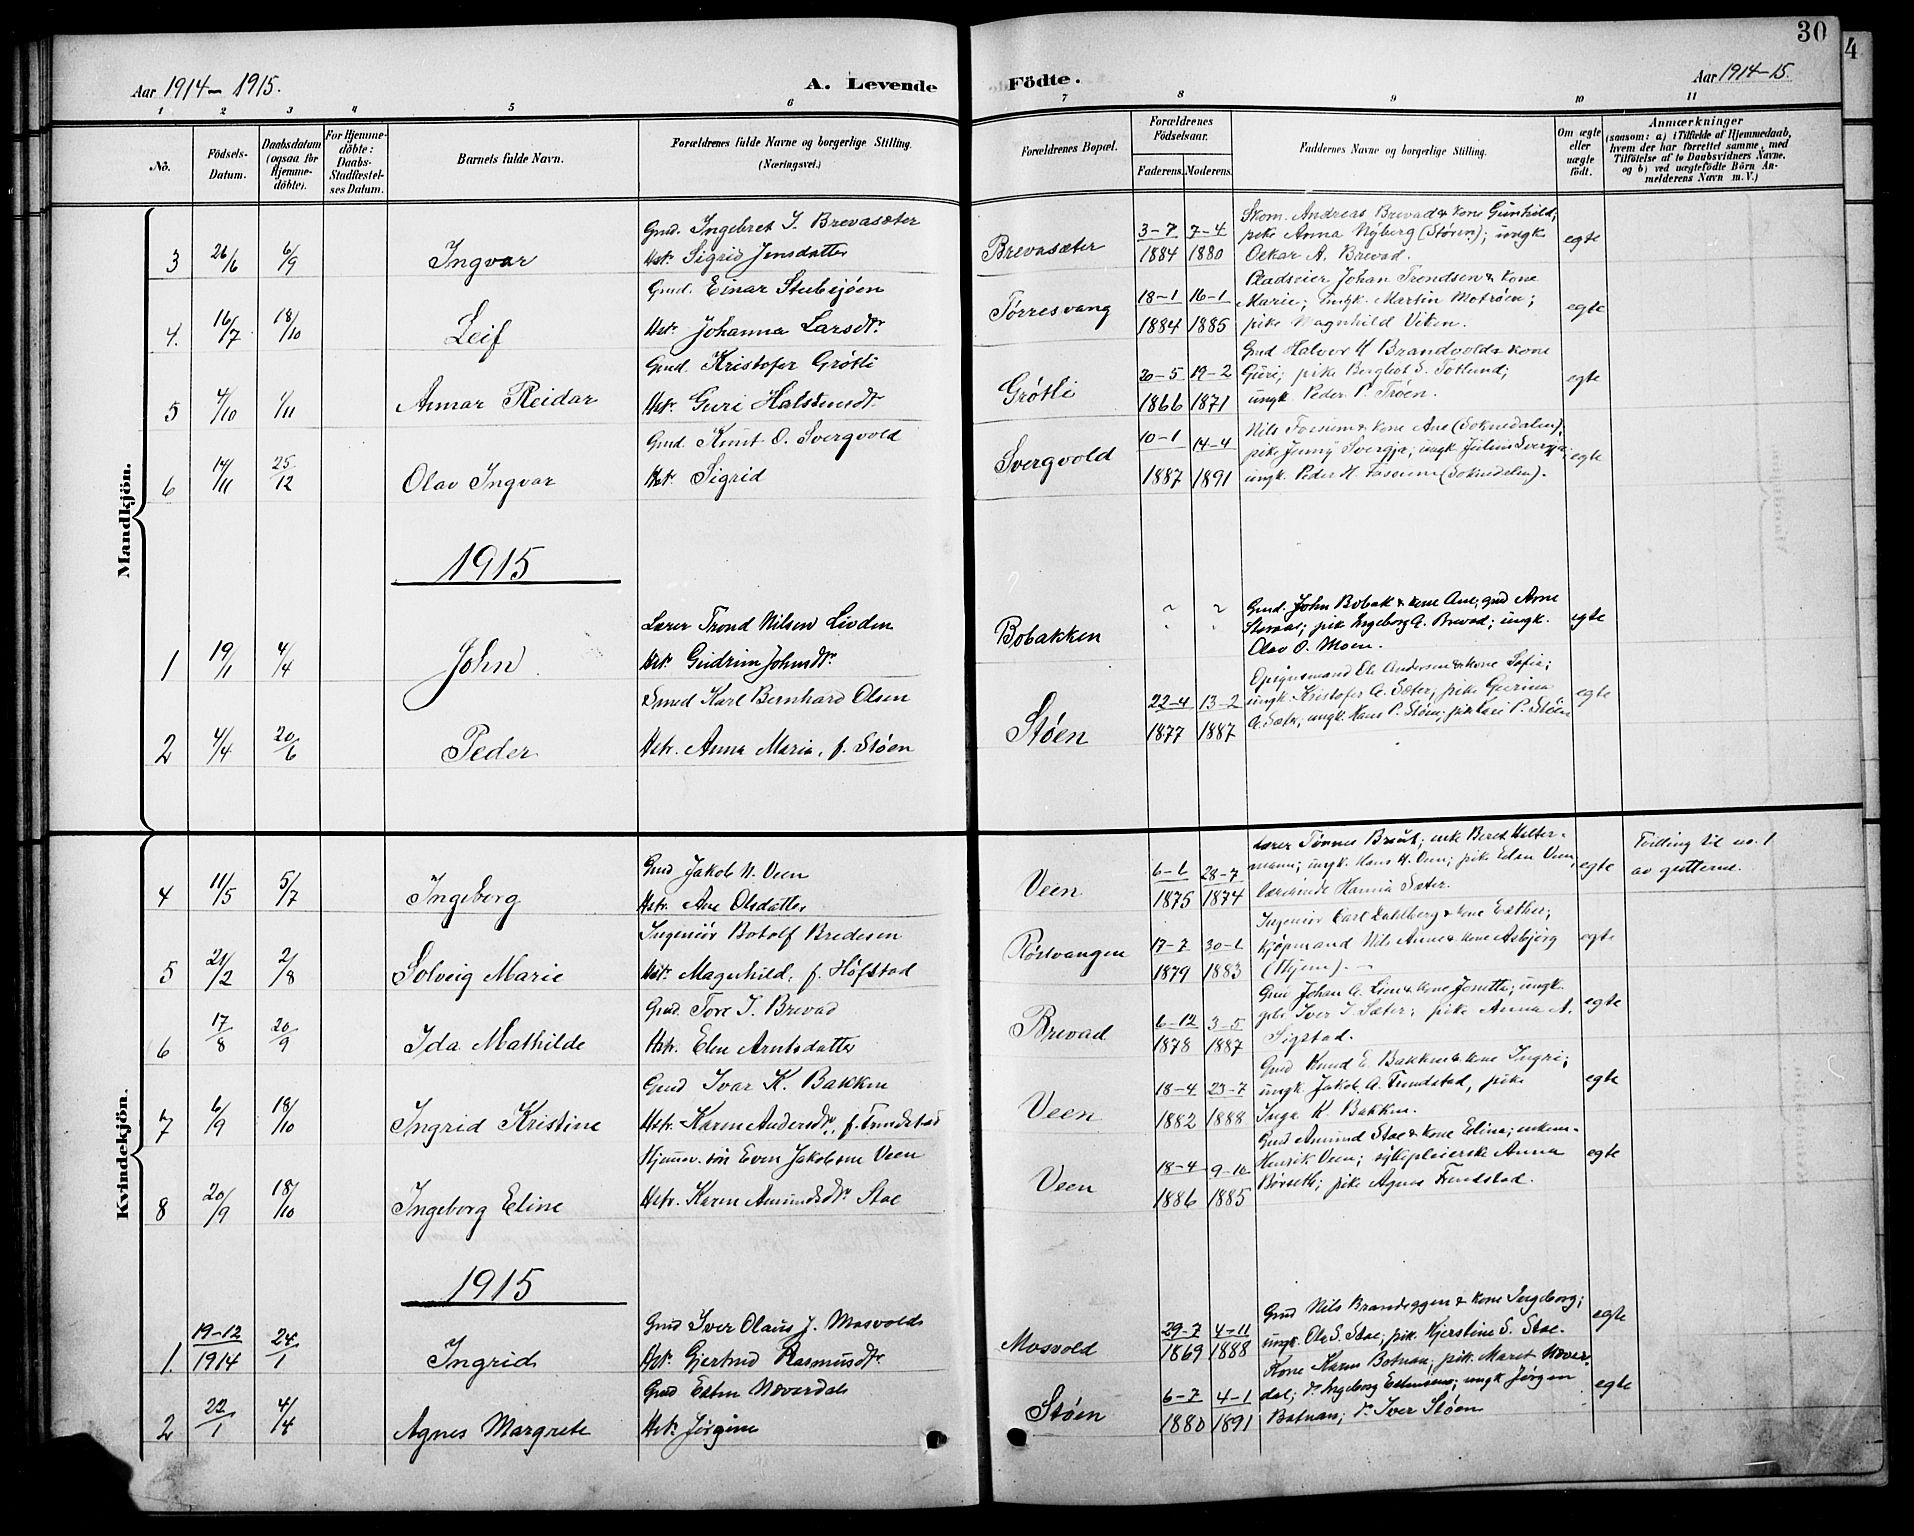 30
4
Aar 1914 - 1915.
A. Levende Födte.
Aar 1914-15.
1 2 3 4 5 6 7 8 9 10 11
No.
Födsels-Datum.
Daabsdatum (ogsaa for Hjemme-döbte).
For Hjemme-döbte: Daabs-Stadfæstel-ses Datum.
Barnets fulde Navn.
Forældrenes fulde Navne og borgerlige Stilling. (Næringsvei.)
Forældrenes Bopæl.
Forældrenes Födselsaar.
Faderens. Moderens.
Faddernes Navne og borgerlige Stilling.
Om ægte eller uægte födt.
Anmærkninger
(saasom: a) i Tilfælde af Hjemmedaab, hvem der har forrettet samme, med Tilföielse af to Daabsvidners Navne. og b) ved uægtefödte Börn An-melderens Navn m. V.)
Mandkjön.
3 26/6 6/9 Ingvar
Gmd. Ingebret J. Brevasæter
Hstr. Sigrid Jensdatter
Brevasæter
3-7 1884 7-4 1880
Skom. Andreas Brevad & kone Gunhild;
pike Anna Nyberg (Støren); ungk.
Oskar A. Brevad.
egte
4. 16/7 18/10 Leif
Gmd. Einar Stubsjøen
Hstr. Johanna Larsdtr.
Tørresvang
18-1 1884 16-1 1885
Pladseier Johan Trondsen & kone
Marie; ungk. Martin Motrøen;
pike Magnhild Viken.
egte
5 4/10 1/11 Anmar Reidar
Gmd. Kristofer Grøtli
Hstr. Guri Halstensdtr.
Grøtli
20-5 1866 19-2 1871
Gmd Halvor H Brandvold & kone
Guri; pike Bergliot S. Totlund;
ungk. Peder P. Trøen.
egte
6 14/11 25/12 Olav Ingvar
Gmd. Knut O. Svergvold
Hstr. Sigrid
Svergvold
10-1 1887 14-4 1891
Nils Fossum & kone Ane (Soknedalen);
pike Jenny Svergja; ungk Julius Svergja;
ungk. Peder H. Fossum (Soknedalen).
egte
1915
1 19/1 4/4 John
Lærer Trond Nilsen Livden
Hstr. Gudrun Johnsdtr.
Bobakken
Gmd. John Bobak & kone Ane; gmd Arne
Storaas; pik Ingeborg A. Brevad; ungk.
Olav O. Moen.
egte
2 4/4 20/6 Peder
Smed Karl Bernhard Olsen
Hstr. Anna Maria, f. Støen
Støen
22-4 1877 13-2 1887
Opsynsmand Ole Andersen & kone Sofie;
ungk. Kristofer A. Sæter; pike Gurina
A. Sæter; ungk. Hans P. Støen; pik Kari P. Støen
egte
Kvindekjön.
4 11/5 5/7 Ingeborg
Gmd Jakob N. Veen
Hstr. Ane Olsdatter
Veen
6-6 1875 28-7 1874
Lærer Tønnes Braut; enke Beret Halter-
mann; ungk. Hans H. Veen; pike Elen Veen
lærerinde Hanna Sæter.
egte
Tvilling til no. 1
av guttene.
5 21/2 2/8 Solveig Marie
Ingeniör Botolf Bredesen
Hstr. Magnhild, f. Höfstad
Röstvangen
17-7 1879 30-1 1883
Ingeniør Carl Dahlberg & kone Esther;
kjøpmand Nils Aune & kone Asbjörg
(Hjem). —
egte
6 17/8 20/9 Ida Mathilde
Gmd. Tore J. Brevad
Hstr. Elen Arntsdatter
Brevad
6-12 1878 3-5 1887
Gmd Johan A. Lien & kone Jonette; ungk
gbr Iver J. Sæter; pike Anna A.
Sigstad.
egte
7 6/9 18/10 Ingrid Kristine
Gmd Ivar K. Bakken
Hstr. Karen Andersdtr. f. Trondstad
Veen
18-4 1882 23-7 1888
Gmd Knud E. Bakken & kone Ingri;
ungk. Jakob A. Trondstad, pike
Inga K Bakken.
egte
8 20/9 18/10 Ingeborg Eline
Hjemmev. sön Even Jakobsen Veen
Hstr. Karen Amundsdtr. Stae
Veen
18-4 1886 9-10 1885
Gmd Amund Stae & kone Elina; enkem.
Henrik Veen; sykepleierske Anna
Børseth; pike Agnes Trondstad.
egte
1915
1. 19-12 1914 24/1 Ingrid
Gmd Iver Olaus J. Mosvold
Hstr. Gjertrud Rasmusdtr.
Mosvold
29-7 1869 4-11 1888
Gmd Nils Brandeggen & kone Ingeborg;
ungk. Ole S. Stae; pik. Kjerstine S. Stae.
egte
2 22/1 4/4 Agnes Margrete
Gmd Esten Næverdal
Hstr. Jørgine
Støen
6-7 1880 4-1 1891
Kone Karen Botnan; pik. Maret Næver-
dal; do Ingeborg Estensen; ungk Jørgen
Botnan; do Iver Støen
egte